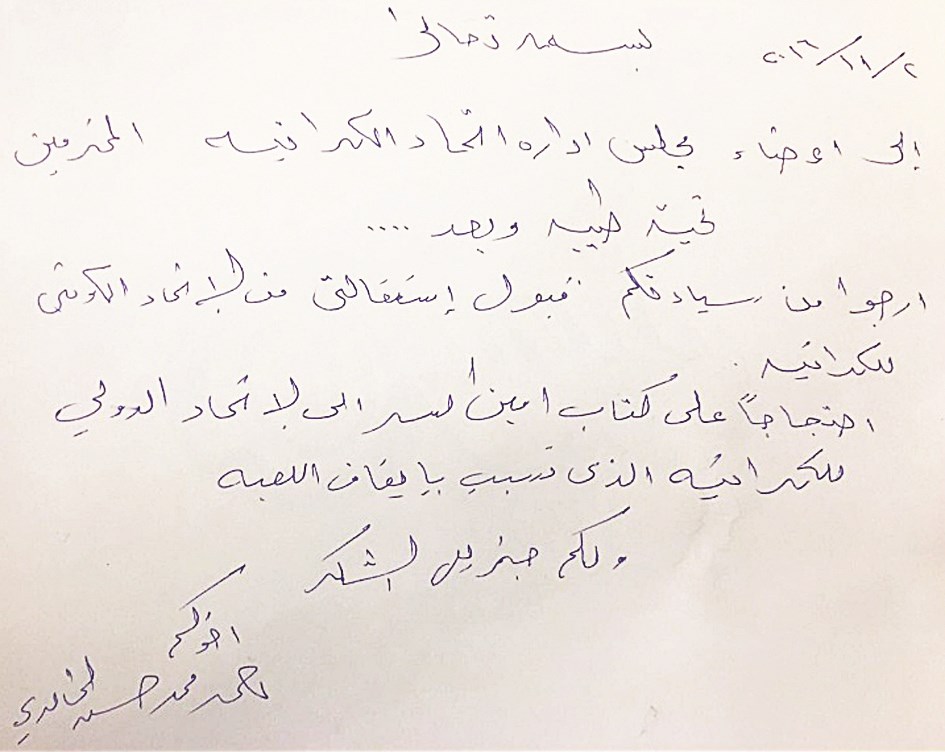 ٢٠١٦/١١/٢
بسمه تعالى
إلى اعضاء مجلس اداره اتحاد الكراتيه المحترمين
تحية طيبه وبعد ....
ارجوا من سيادتكم قبول إستقالتى من الاتحاد الكويتى
للكراتيه .
احتجاجاً على كتاب امين السر الى الاتحاد الدولي
للكراتيه الذى تسبب بإيقاف اللعبه
ولكم جزيل الشكر
اخوكم
احمد محمد حسن الخالدي